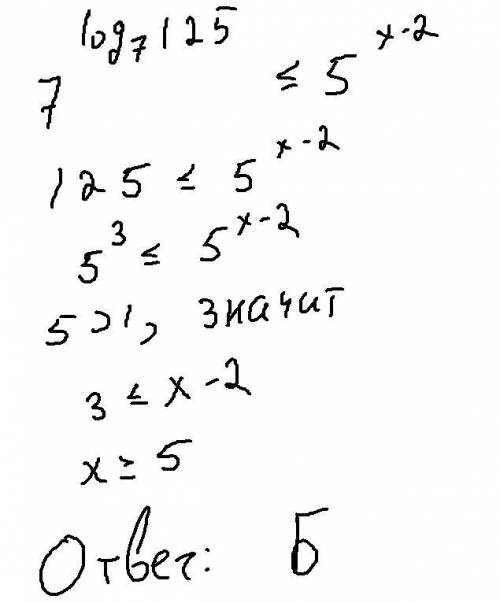 7^{log_7 125} ≤ 5^{x-2}
125 ≤ 5^{x-2}
5^3 ≤ 5^{x-2}
5 > 1, значит
3 ≤ x - 2
x ≥ 5
Ответ: Б